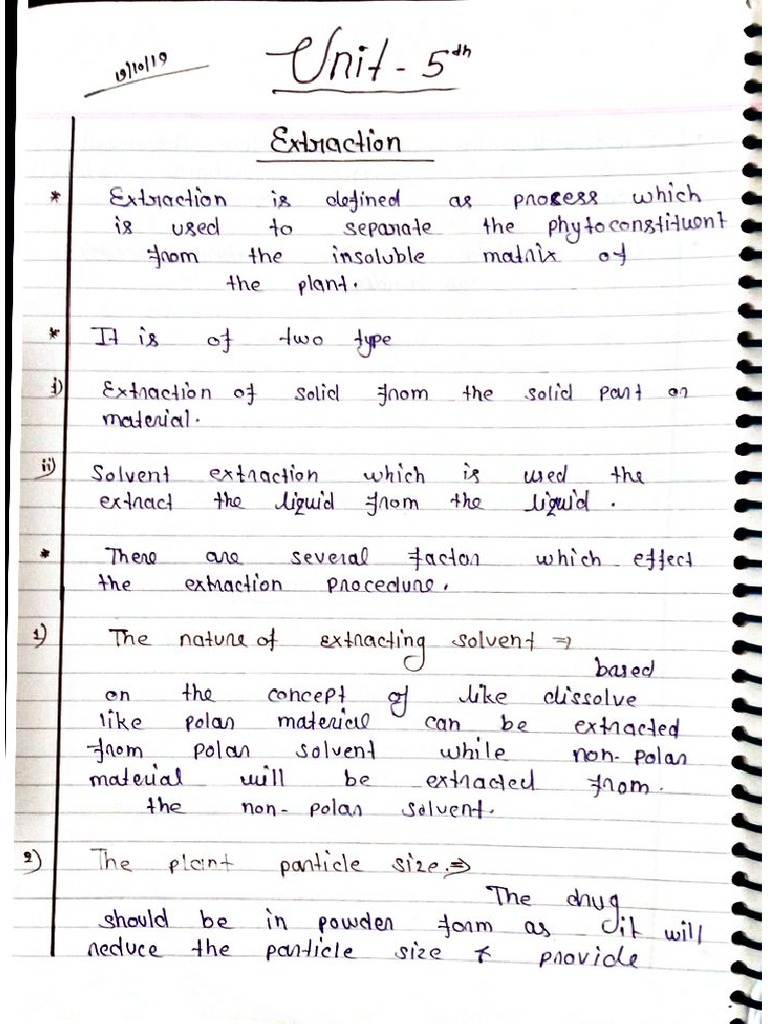 19/10/19
Unit - 5th
Extraction
* Extraction is defined as process which
is used to separate the phytoconstituent
from the insoluble matrix of
the plant.
* It is of two type
i) Extraction of solid from the solid part or
material.
ii) Solvent extraction which is used the
extract the liquid from the liquid .
* There are several factor which effect
the extraction procedure.
1) The nature of extracting solvent ⇒
based
on the concept of like dissolve
like polar material can be extracted
from polar solvent while non-polar
material will be extracted from.
the non-polar solvent.
2) The plant particle size.⇒
The drug
should be in powder form as it will
reduce the particle size & provide